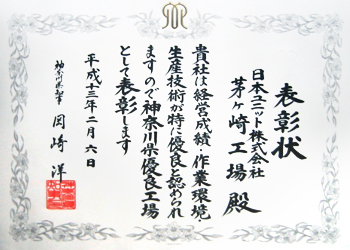 表彰状
日本ユニット株式会社
茅ヶ崎工場殿
貴社は経営成績・作業環境・
生産技術が特に優良と認められ
ますので神奈川県優良工場
として表彰します
平成十三年二月六日
神奈川県知事 岡崎洋